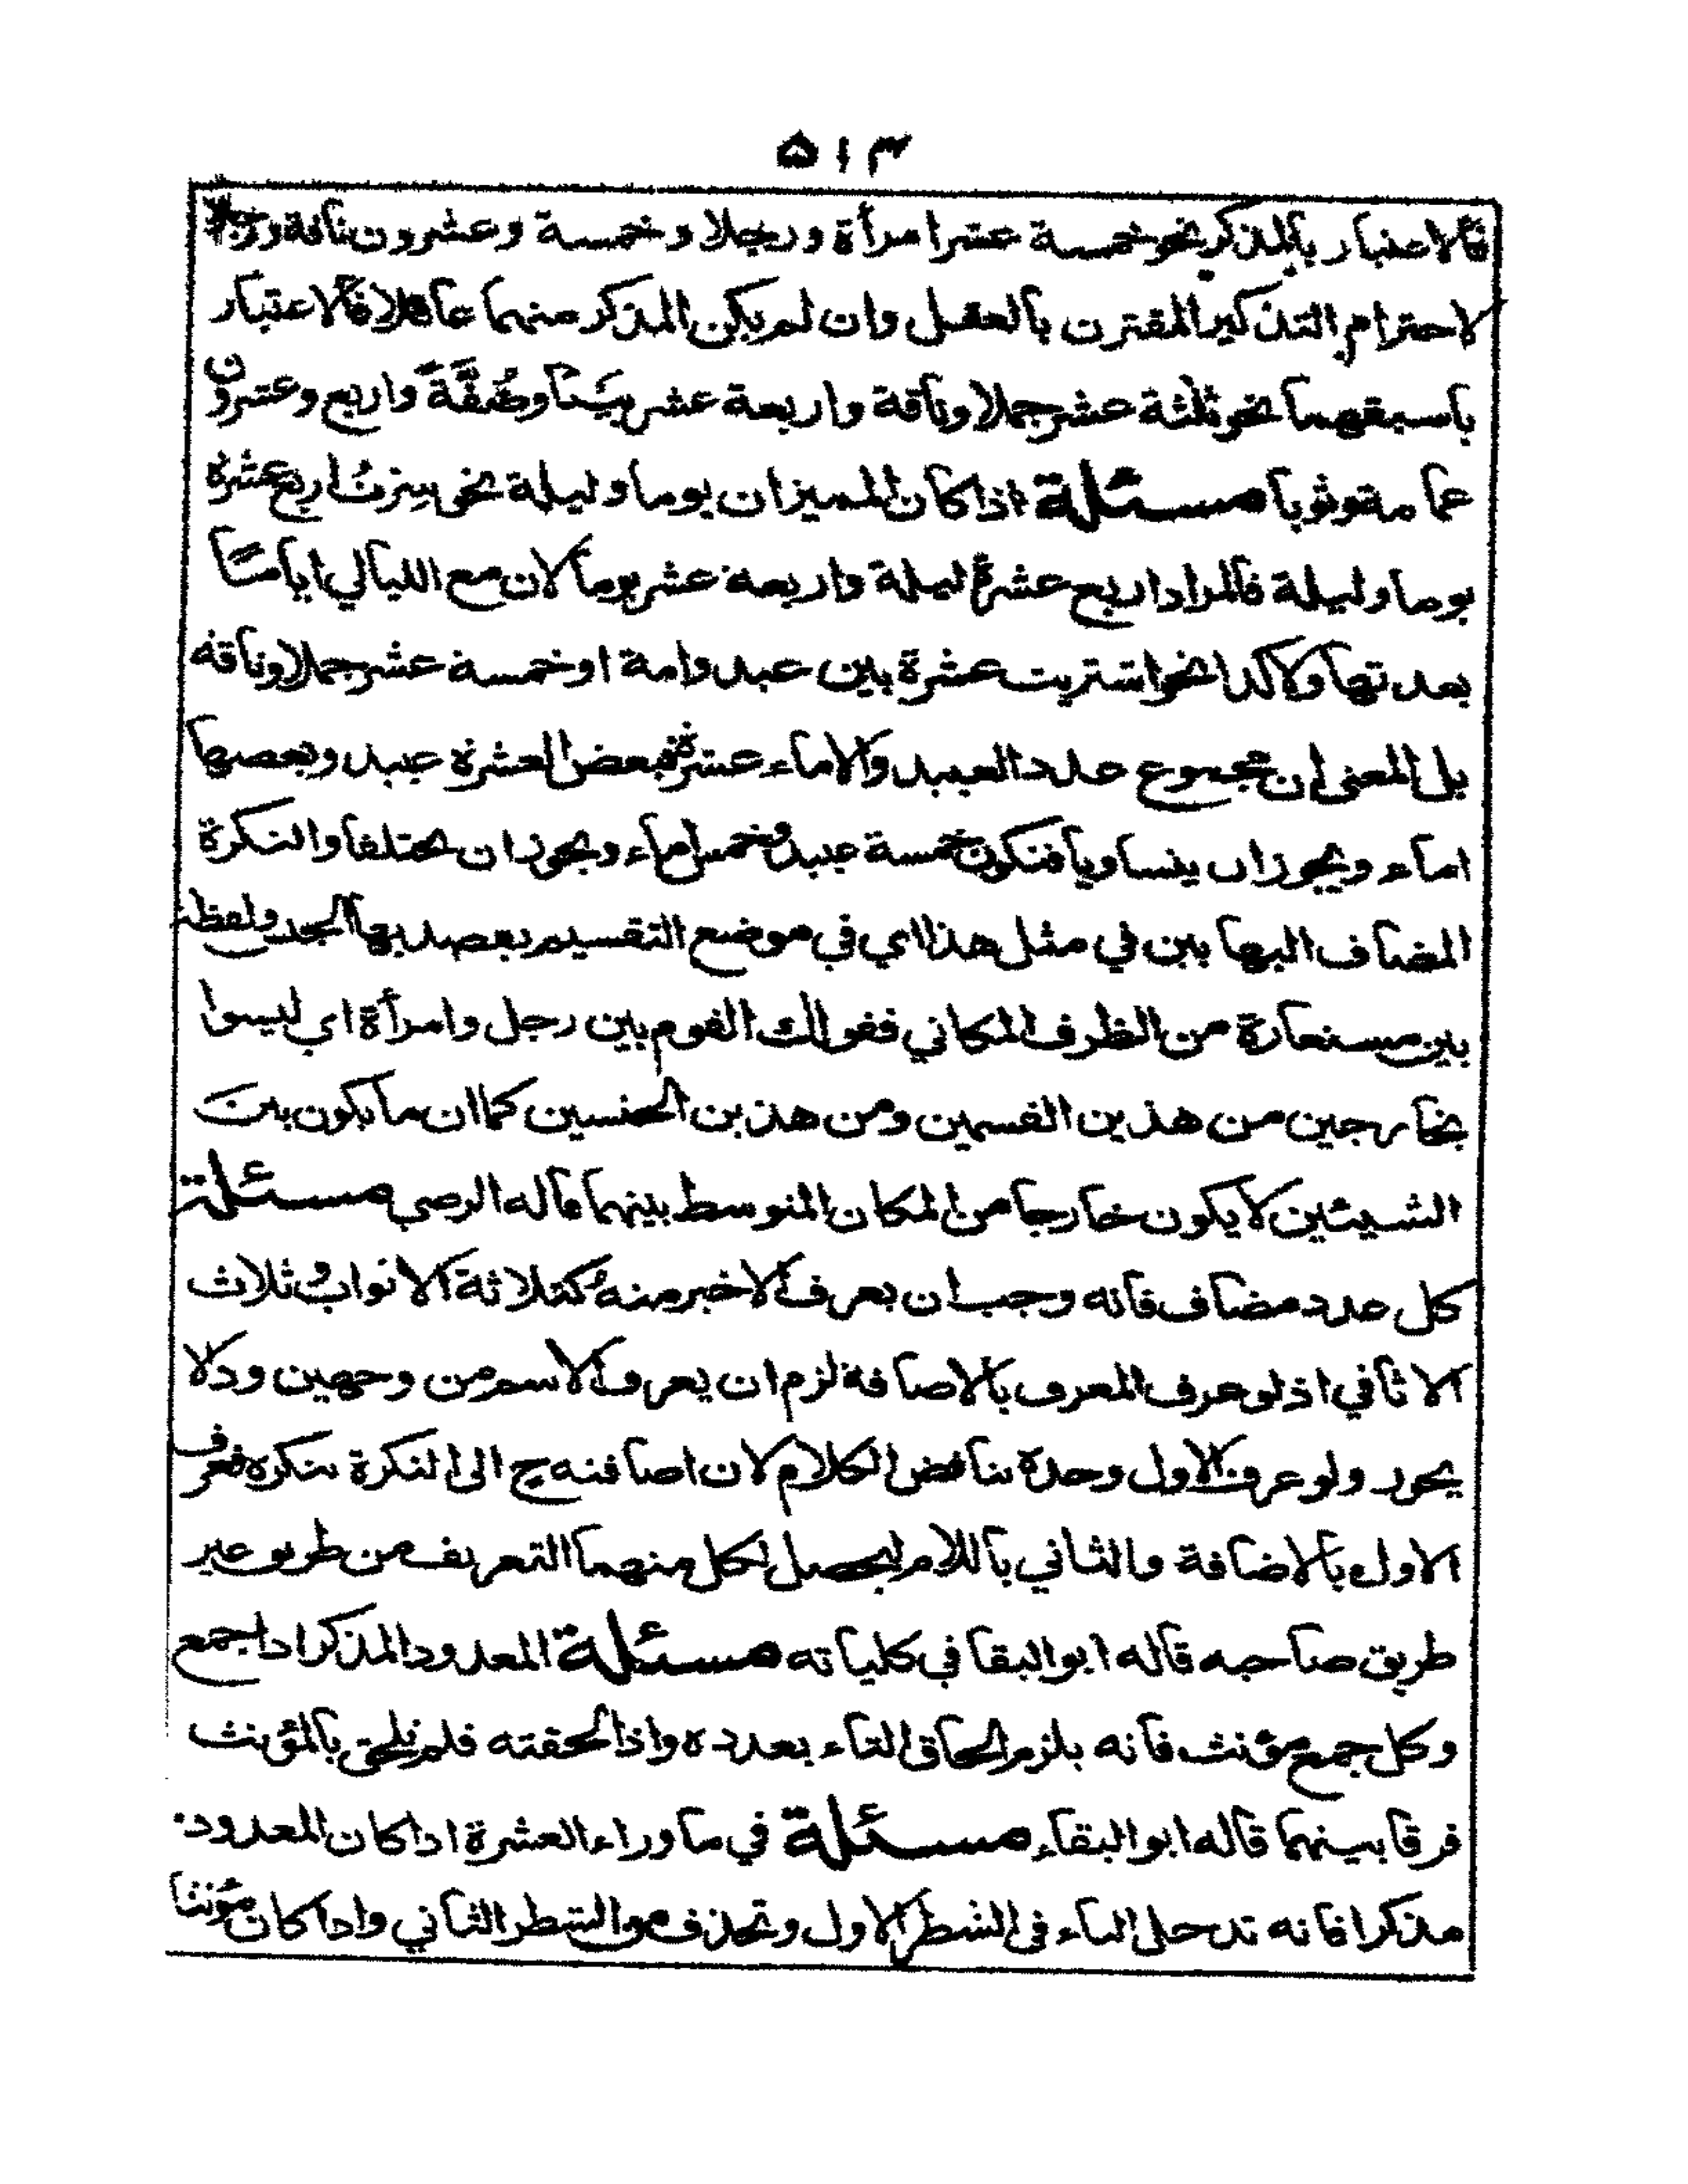 ٥١٣
فالاعتبار بالمذكر نحو خمسة عشر امرأة ورجلا وخمسة وعشرون ناقة ورجلا
لاحترام التذكير المقترن بالعقل وان لم يكن المذكر منهما عاقلا فالاعتبار
باسبقهما نحو ثلثة عشر جملا وناقة واربعة عشر بيتا وصُفَّةً واربع وعشرون
عمامة وثوبا مسئلة اذا كان المميزان يوما وليلة نحو سرت اربع عشرة
يوما وليلة فالمراد اربع عشرة ليلة واربعة عشر يوما لان مع الليالي اياما
بعدتها ولا كذا نحو اشتريت عشرة بين عبد وامة او خمسة عشر جملا وناقة
بل المعنى ان مجموع عدد العبيد والاماء عشرة فبعض العشرة عبيد وبعضها
اماء ويجوز ان يتساويا فتكون خمسة عبيد وخمس اماء ويجوز ان يختلفا والنكرة
المضاف اليها بين في مثل هذا اي في موضع التقسيم يقصد بها الجنس ولفظة
بين مستعارة من الظرف المكاني فقولك القوم بين رجل وامرأة اي ليسوا
بخارجين من هذين القسمين ومن هذين الجنسين كما ان ما يكون بين
الشيئين لا يكون خارجا من المكان المتوسط بينهما قاله الرضي مسئلة
كل عدد مضاف فانه وجب ان يعرف الاخير منه كثلاثة الاثواب وثلاث
الاثافي اذ لو عرف المعرف بالاضافة لزم ان يعرف الاسم من وجهين وذلا
يجوز ولو عرف الاول وحده تناقض الكلام لان اضافته ح الى النكرة تنكره فعرف
الاول بالاضافة والثاني باللام ليحصل لكل منهما التعريف من طريق غير
طريق صاحبه قاله ابو البقا في كلياته مسئلة المعدود المذكر اذا جمع
وكل جمع مؤنث فانه يلزم الحاق التاء بعدده واذا لحقته فلم تلحق بالمؤنث
فرقا بينهما قاله ابو البقاء مسئلة في ما وراء العشرة اذا كان المعدود
مذكرا فانه تدخل التاء في الشطر الاول وتحذف من الشطر الثاني واذا كان مؤنثا